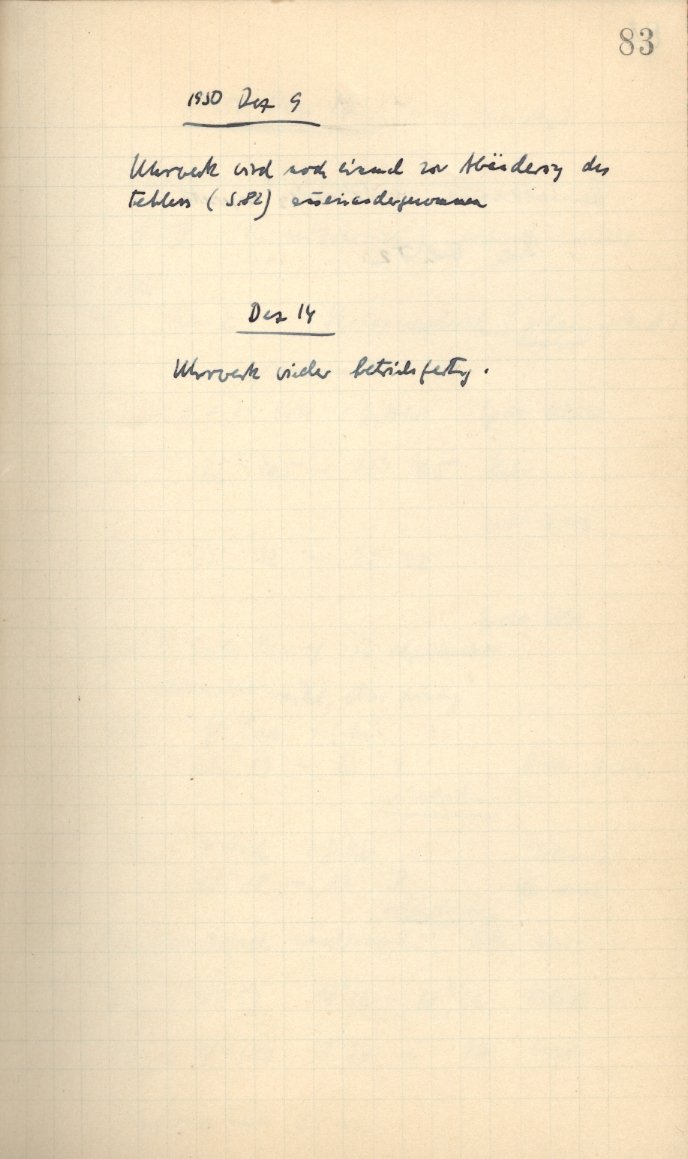 83
1950 Dez 9
Uhrwerk wird noch einmal zur Abänderung des
Fehlers (S.82) auseinandergenommen
Dez 14
Uhrwerk wieder betriebsfertig.